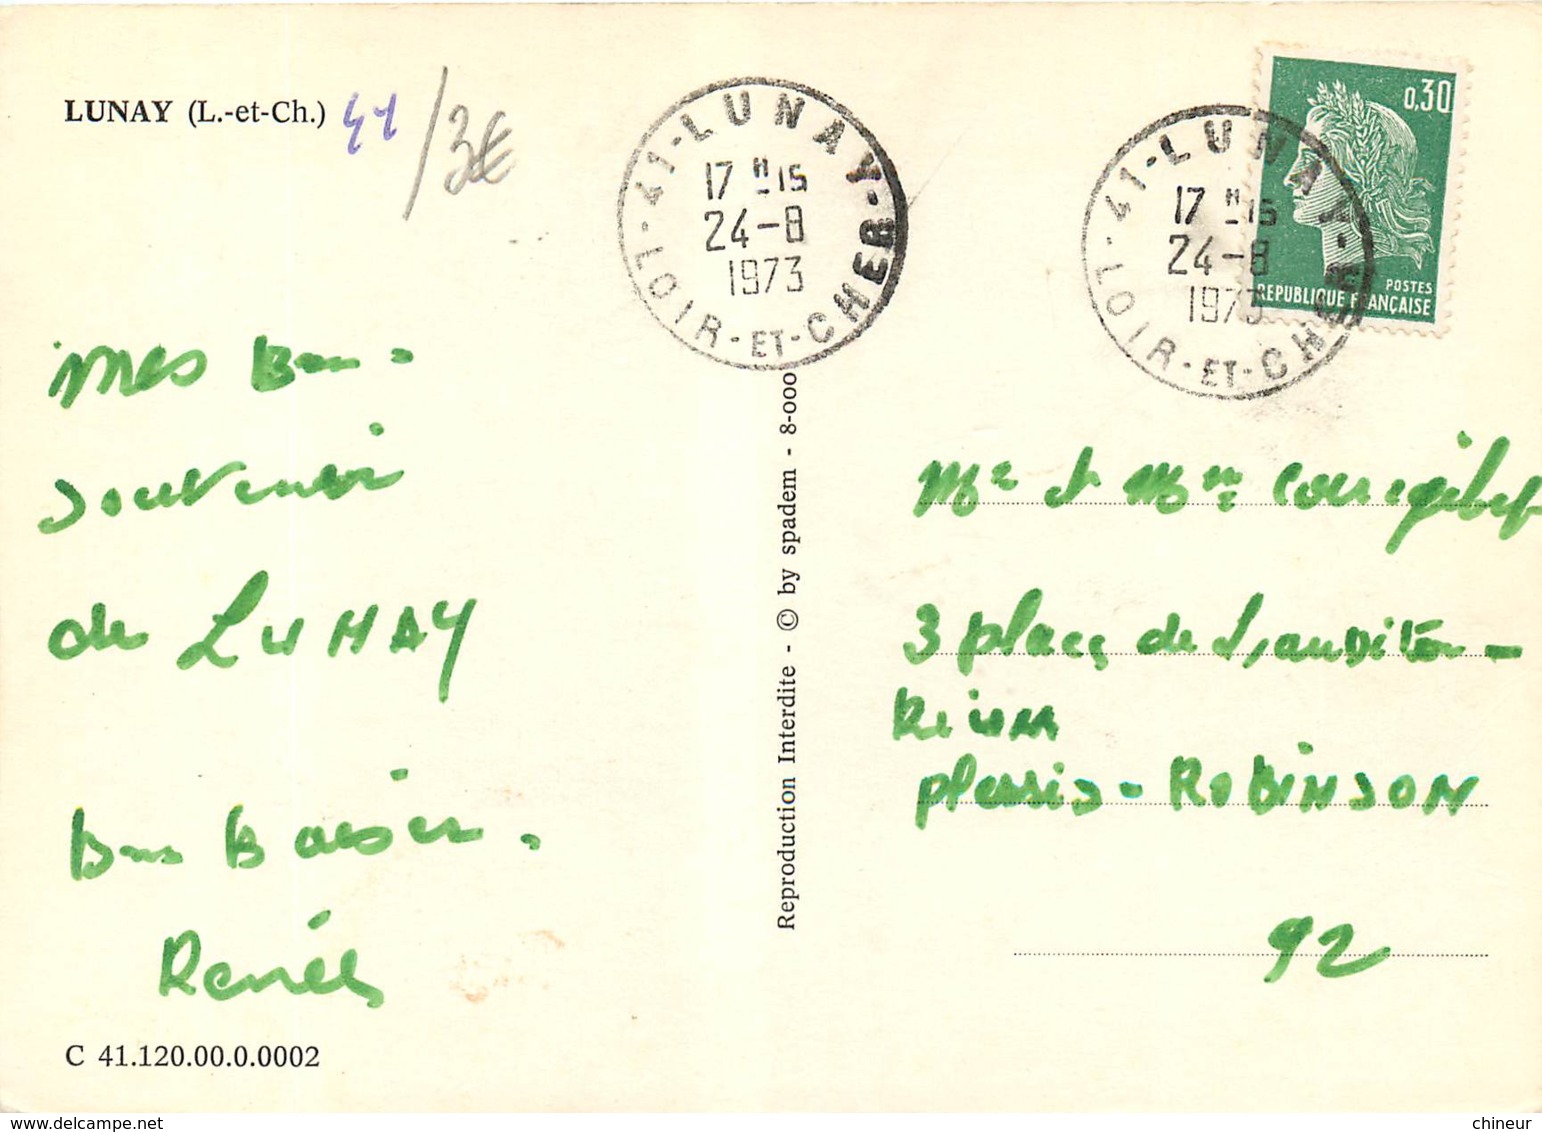 LUNAY (L.-et-Ch.) 41 /3€
41-LUNAY-LOIR-ET-CHER-
17 H 15
24-8
1973
41-LUNAY-LOIR-ET-CHER
17 H 15
24-8
1973
0,30
POSTES
REPUBLIQUE FRANÇAISE
mes Bon.
souvenir
de LUNAY
Bon Baiser.
Renée
C 41.120.00.0.0002
Reproduction Interdite - © by spadem - 8-000
Mr et Mme
3 place de
plessis-ROBINSON
92
chineur